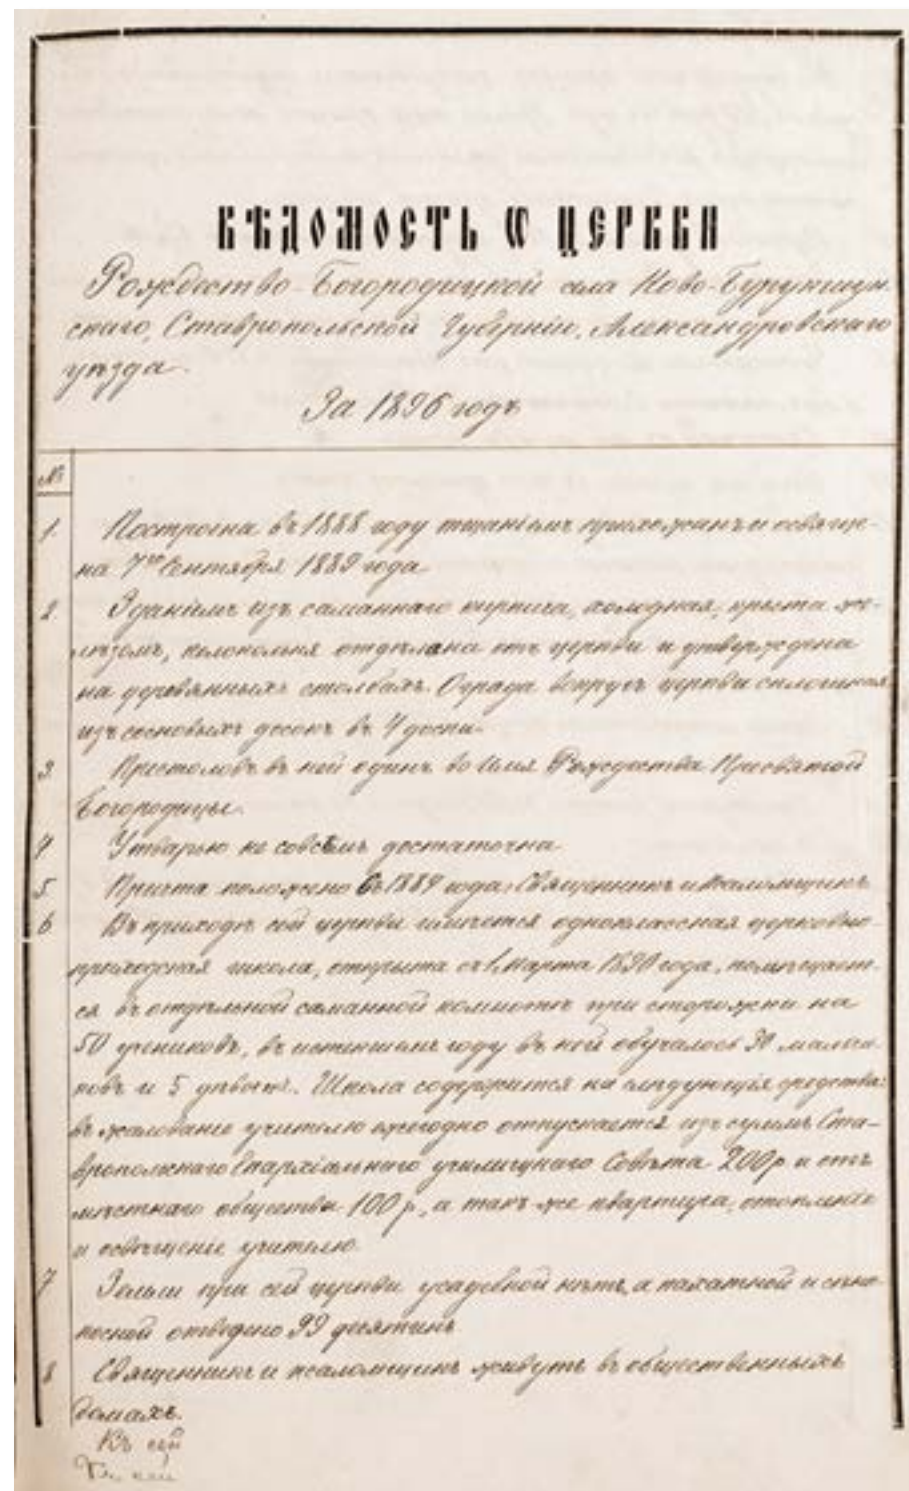 ВѢДОМОСТЬ Ѡ ЦЕРКВИ
Рождество-Богородицкой села Ново-Бурукшун-
скаго, Ставропольской Губерніи, Александровскаго
уѣзда.
За 1896 годъ
№
1. Построена въ 1888 году тщаніемъ прихожанъ и освяще-
на 7го Сентября 1889 года.
2. Зданіемъ изъ саманнаго кирпича, холодная, крыта же-
лѣзомъ, колокольня отдѣлана отъ церкви и утверждена
на деревянныхъ столбахъ. Ограда вокругъ церкви сплошная
изъ сосновыхъ досокъ въ 4 доски.
3. Престоловъ въ ней одинъ во Имя Рождества Пресвятой
Богородицы.
4 Утварью не совсѣмъ достаточна
5 Причта положено съ 1889 года: Священникъ и псаломщикъ
6 Въ приходѣ сей церкви имѣется одноклассная церковно-
приходская школа, открыта съ 1 Марта 1890 года, помѣщает-
ся въ отдѣльной саманной комнатѣ при сторожки на
50 учениковъ, въ истекшемъ году въ ней обучалось 30 мальчи-
ковъ и 5 дѣвочк. Школа содержится на слѣдующія средства:
въ жалованіе учителю ежегодно отпускается изъ суммъ Ста-
вропольскаго Епархіальнаго училищнаго Совѣта 200 р и отъ
мѣстнаго общества 100 р., а такъ же квартира, отопленіе
и освѣщеніе учителю.
7 Земли при сей церкви усадебной нѣтъ, а пахатной и сѣно-
косной отведено 99 десятинъ
8 Священникъ и псаломщикъ живутъ въ общественныхъ
домахъ.
Къ сей